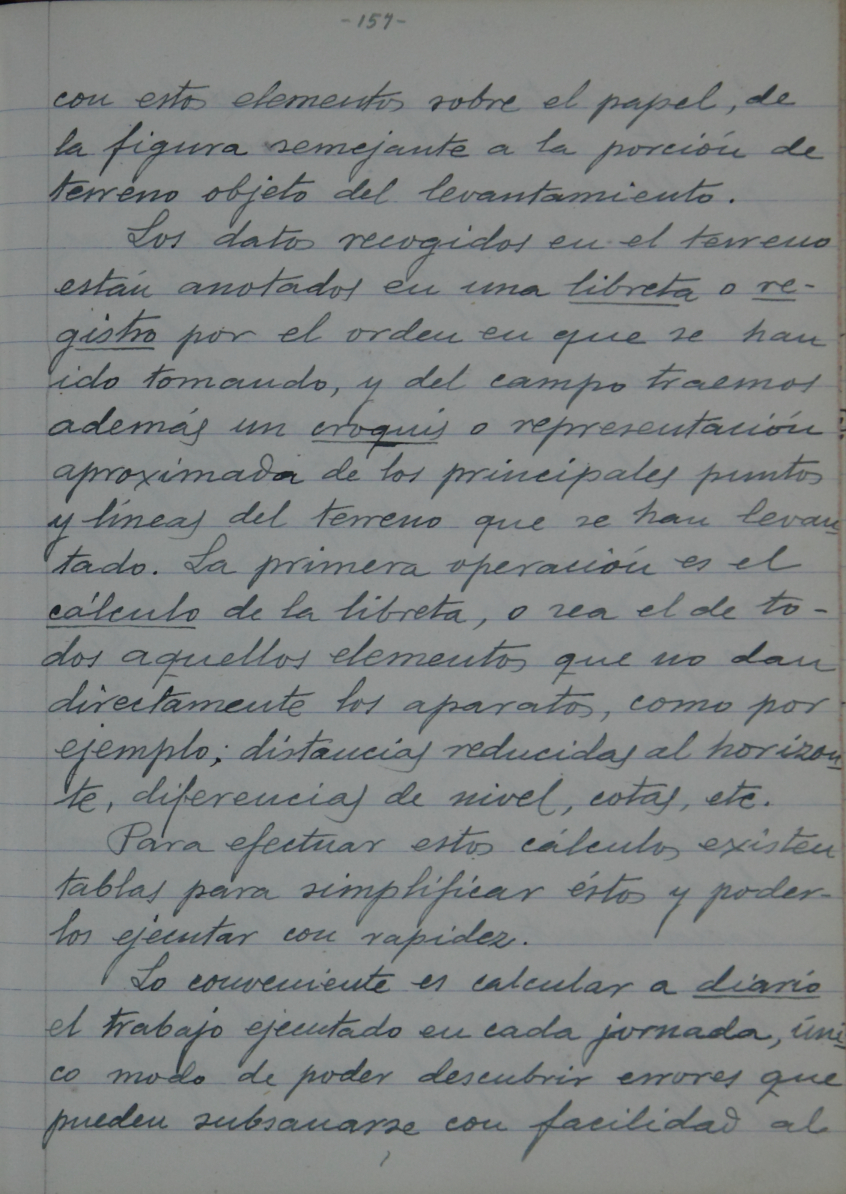 -157-
con estos elementos sobre el papel, de
la figura semejante a la porción de
terreno objeto del levantamiento.
Los datos recogidos en el terreno
están anotados en una libreta o re-
gistro por el orden en que se han
ido tomando, y del campo traemos
además un croquis o representación
aproximada de los principales puntos
y líneas del terreno que se han levan-
tado. La primera operación es el
cálculo de la libreta, o sea el de to-
dos aquellos elementos que no dan
directamente los aparatos, como por
ejemplo; distancias reducidas al horizon-
te, diferencias de nivel, cotas, etc.
Para efectuar estos cálculos existen
tablas para simplificar éstos y poder-
los ejecutar con rapidez.
Lo conveniente es calcular a diario
el trabajo ejecutado en cada jornada, úni-
co modo de poder descubrir errores que
pueden subsanarse con facilidad al